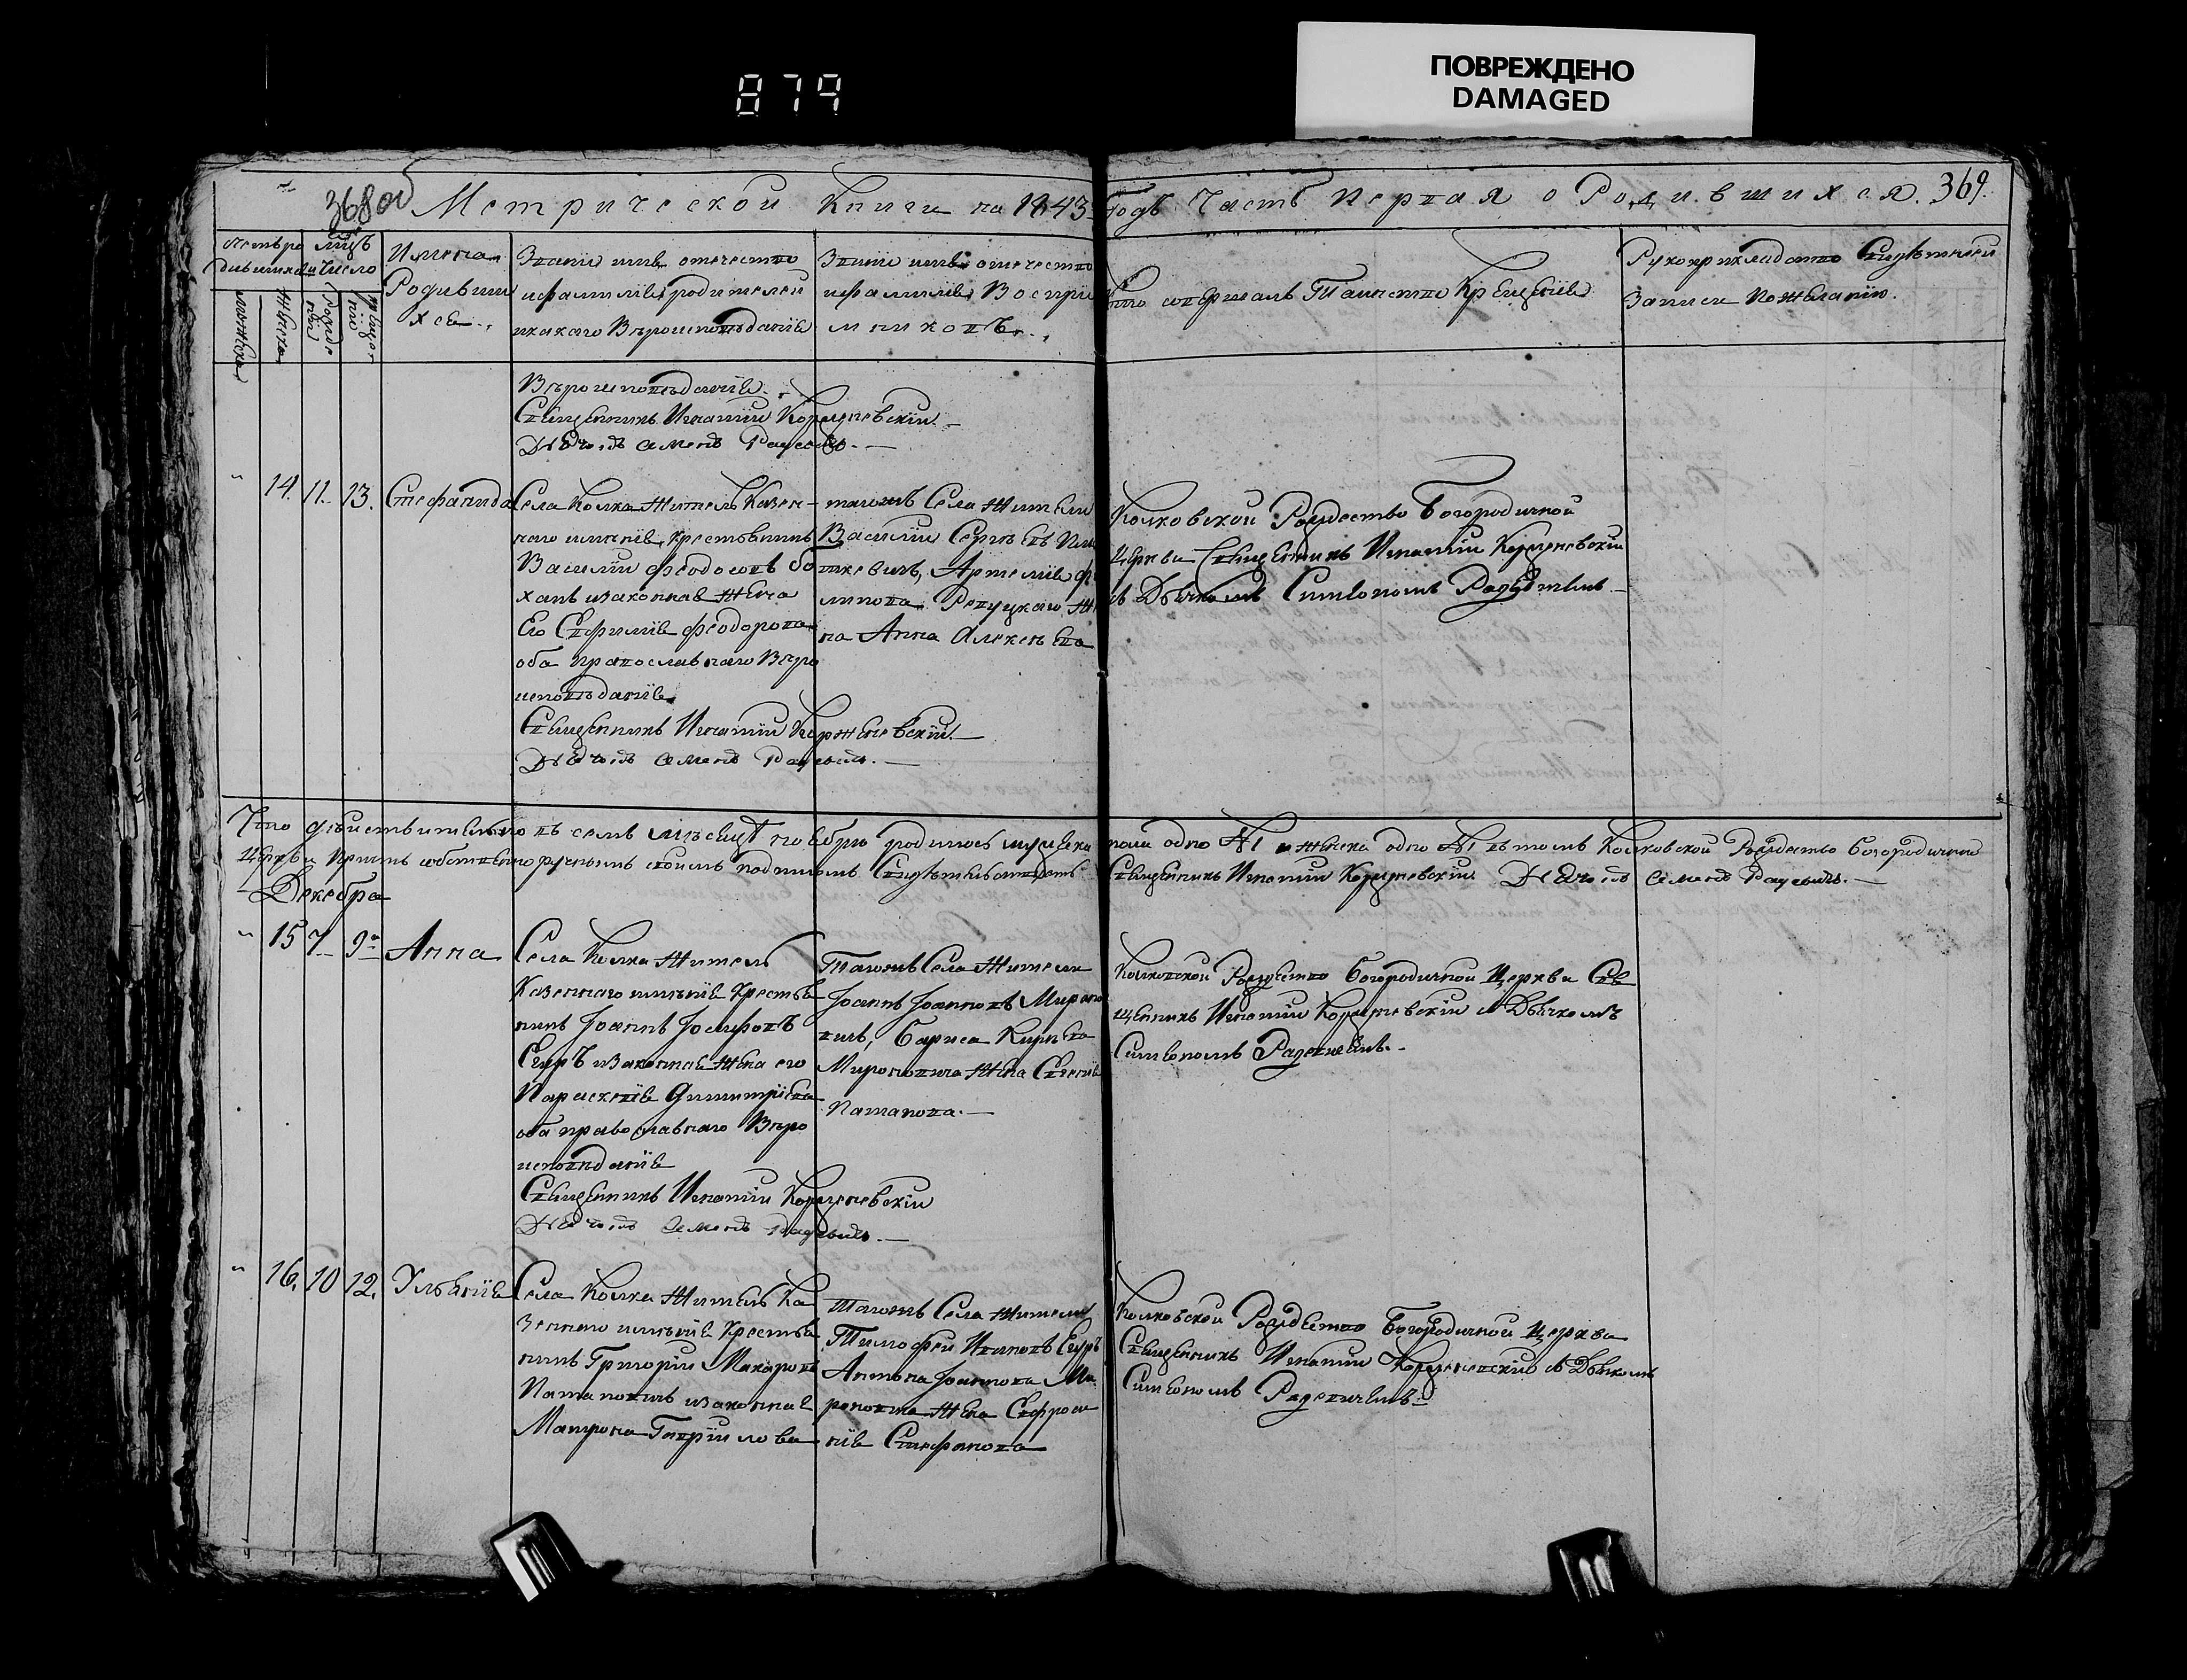 879
ПОВРЕЖДЕНО
DAMAGED
368 об
Метрической Книги на 1843 Годъ Часть Первая о Родившихся. 369.
Имена
Родивши
хся.
Званіе имя отечество
и фамилія родителей
и какаго Вѣроисповѣданія
Званіе имя отечество
и фамилія Воспріе
мниковъ.
Кто совершалъ Таинство Крещенія
Рукоприкладство Свидѣтелей
Записи по желанію.
Вѣроисповѣданія.
Священникъ Игнатій Корженевскій.
Дьячокъ Семенъ
14. 11. 13. Стефанида
Села Колка житель Казен-
наго имѣнія крестьянинъ
Василій Феодосовъ
и законная жена
Его Евфимія Феодорова
оба православнаго Вѣро
исповѣданія
Священникъ Игнатій Корженевскій.
Дьячокъ Семенъ
тагожъ Села жители
Василій Сергѣевъ
Артемія
жe
на Анна Алексѣева
Колковской Рождество Богородичной
Церкви Священникъ Игнатій Корженевскій
съ Дьячкомъ Симеономъ
Что дѣйствительно въ семъ мѣсяцѣ ноябрѣ родилось мужеска пола одно №1 и женска одно №1 въ томъ Колковской Рождество Богородичной
Церкви причтъ собственноручнымъ своимъ подписомъ Свидѣтельствуетъ Священникъ Игнатій Корженевскій Дьячокъ Семенъ
Декабря
15 7. 9го Анна
Села Колка житель
Казеннаго имѣнія Крестья
нинъ Іоаннъ Іосифовъ
и законная жена его
Параскевія Димитріева
оба православнаго Вѣро
исповѣданія
Священникъ Игнатій Корженевскій
Дьячокъ Семенъ
Тагожъ Села жители
Іоаннъ Іоанновъ Мироно
вичъ, Бориса Кирѣева
Мироновича жена Евгенія
Патапова.
Колковской Рождество Богородичной Церкви Свя
щенникъ Игнатій Корженевскій съ Дьячкомъ
Симеономъ
16. 10 12. Ульянія
Села Колка житель Ка
зеннаго имѣнія Крестья
нинъ Григорій Макаровъ
Патаповичъ и законная
Матрона Гавриилова
тагожъ Села жители
Тимофей Ивановъ
Антона Іоаннова Ми
роновича жена Евфроси
нія Стефанова
Колковской Рождество Богородичной Церкви
Священникъ Игнатій Корженевскій съ Дьячкомъ
Симеономъ